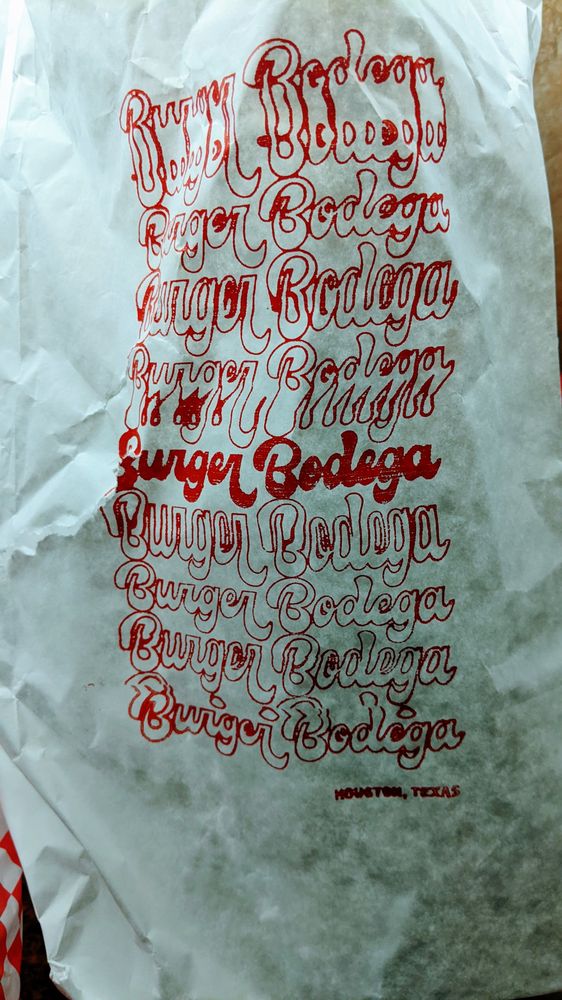 Burger Bodega
Burger Bodega
Burger Bodega
Burger Bodega
Burger Bodega
Burger Bodega
Burger Bodega
Burger Bodega
Burger Bodega
HOUSTON, TEXAS